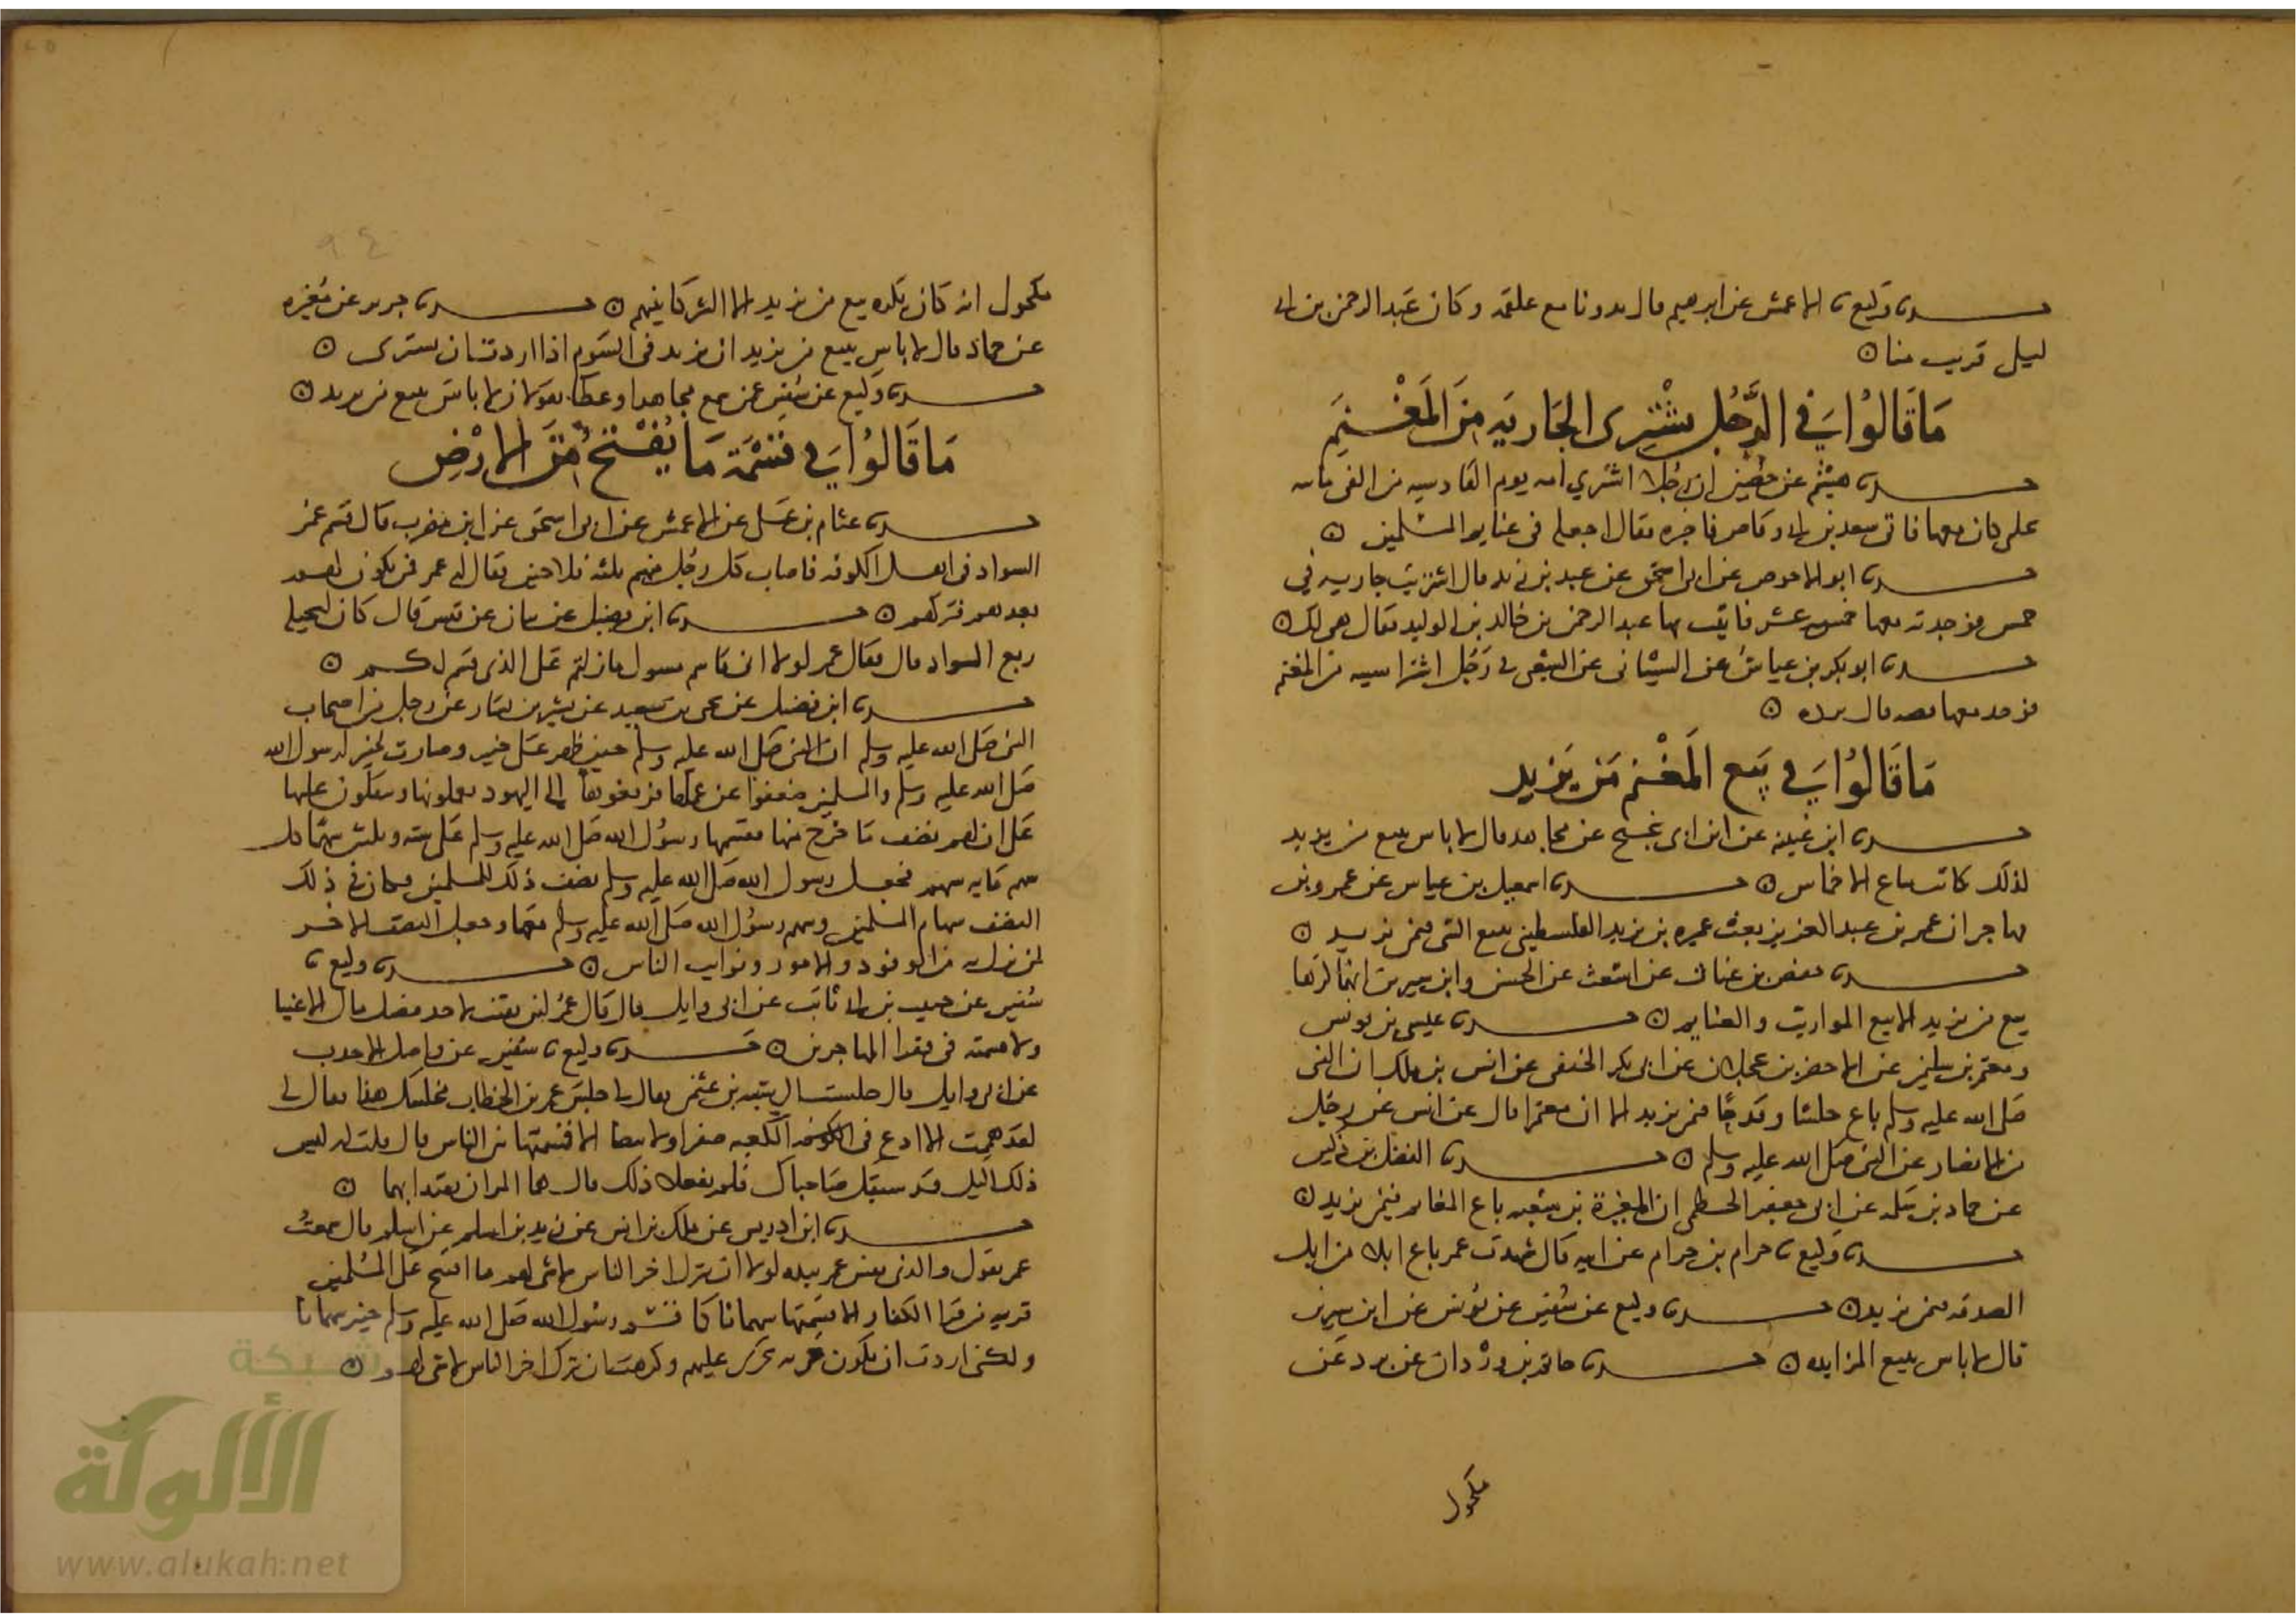 حدثنا وكيع نا الاعمش عن ابرهيم قال بدونا مع علقمة وكان عبد الرحمن بن ابى
ليلى قريب منا ⊙
مَا قَالُوا فِي الرَّجُلِ يَشْتَرِى الجَارِيَه مِنَ المَغْنَمِ
حدثنا هيثم عن حصين ان رجلا اشتري امه يوم القادسيه من الفى فاتته
بحلى كان معها فاتى سعد بن ابى وقاص فاخبره فقال اجعله فى غنايم المسلمين ⊙
حدثنا ابو الاحوص عن ابى اسحق عن عبد بن زيد قال اشتريت جاريه في
خمس فوجدت معها خمسه عشر فاتيت بها عبد الرحمن بن خالد بن الوليد فقال هى لك ⊙
حدثنا ابو بكر بن عياش عن الشيبانى عن الشعبى فى رجل اشترا سبيه من المغنم
فوجد معها فضه قال يرده ⊙
مَا قَالُوا فِي بَيع المَغْنَم مَن يَزِيد
حدثنا ابن عيينه عن ابن ابى نجيح عن مجاهد قال لا باس ببيع من يزيد
لذلك كانت تباع الاخماس ⊙ حدثنا اسمعيل بن عياش عن عمرو بن
مهاجر ان عمر بن عبد العزيز بعث عميره بن يزيد الفلسطينى يبيع السبى فيمن يزيد ⊙
حدثنا حفص بن غياث عن اشعث عن الحسن وابن سيرين انهما كرها
بيع من يزيد الا بيع المواريث والغنايم ⊙ حدثنا عيسى بن يونس
ومعتمر بن سليمن عن الاخضر بن عجلان عن ابى بكر الحنفى عن انس بن ملك ان النبى
صلى الله عليه وسلم باع حلسا وقدحا فيمن يزيد الا ان معتمرا قال عن انس عن رجل
من الانصار عن النبى صلى الله عليه وسلم ⊙ حدثنا الفضل بن دكين
عن حماد بن سلمه عن ابى جعفر الخطمى ان المغيرة بن شعبه باع المغانم فيمن يزيد ⊙
حدثنا وكيع نا حرام بن حرام عن ابيه قال شهدت عمر باع ابلا من ابل
الصدقه فيمن يزيد ⊙ حدثنا وكيع عن سفين عن يونس عن ابن سيرين
قال لا باس ببيع المزايده ⊙ حدثنا حاتم بن وردان عن برد عن
مكحول
مكحول انه كان يكره بيع من يزيد الا الشركا بينهم ⊙ حدثنا جرير عن مغيره
عن حماد قال لا باس ببيع من يزيد ان تزيد فى السوم اذا اردت ان تشترى ⊙
حدثنا وكيع عن سفين عن من سمع مجاهدا وعطا يقولان لا باس ببيع من يزيد ⊙
مَا قَالُوا فِي قسْمَة مَا يُفْتَحُ مِنَ الارْضِ
حدثنا عثام بن على عن الاعمش عن ابى اسحق عن ابن مضرب قال قسم عمر
السواد فى اهل الكوفه فاصاب كل رجل منهم ثلثه فلاحين فقال له على فمن يكون لهم
بعدهم فتركهم ⊙ حدثنا ابن فضيل عن بيان عن قيس قال كان لبجيله
ربع السواد قال فقال عمر لولا انى قاسم مسول ما زلتم على الذى قسم لكم ⊙
حدثنا ابن فضيل عن يحى بن سعيد عن بشير بن يسار عن رجل من اصحاب
النبى صلى الله عليه وسلم ان النبى صلى الله عليه وسلم حين ظهر على خيبر وصارت خيبر لرسول الله
صلى الله عليه وسلم والمسلمين ضعفوا عن عملها فدفعوها إلى اليهود يعملونها وينفقون عليها
على ان لهم نصف ما خرج منها فقسمها رسول الله صلى الله عليه وسلم على سته وثلثين سهما كل
سهم مايه سهم فجعل رسول الله صلى الله عليه وسلم نصف ذلك للمسلمين فكان فى ذلك
النصف سهام المسلمين وسهم رسول الله صلى الله عليه وسلم معها وجعل النصف الاخر
لمن نزل به من الوفود والامور ونوايب الناس ⊙ حدثنا وكيع نا
سفين عن حبيب بن ابى ثابت عن ابى وايل قال قال عمر لين بقيت لاخذن فضل مال الاغنيا
ولاقسمنه فى فقرا المهاجرين ⊙ حدثنا وكيع نا سفين عن واصل الاحدب
عن ابى وايل قال جلست الى شيبه بن عثمن فقال لى جلس عمر بن الخطاب مجلسك هذا فقال لى
لقد هممت الا ادع فى الكعبه صفرا ولا بيضا الا قسمتها بين الناس قال قلت له ليس
ذلك اليك قد سبقك صاحباك فلم يفعلا ذلك قال هما المران يقتدا بهما ⊙
حدثنا ابن ادريس عن ملك بن انس عن زيد بن اسلم عن اسلم قال سمعت
عمر يقول والذى نفس عمر بيده لولا ان يترك اخر الناس لا شى لهم ما افتتح على المسلمين
قريه من قرا الكفار الا قسمتها سهمانا كما قسم رسول الله صلى الله عليه وسلم خيبر سهمانا
ولكنى اردت ان يكون جريه تجرى عليهم وكرهت ان يترك اخر الناس لا شى لهم ⊙
شبكة
الألوكة
www.alukah.net